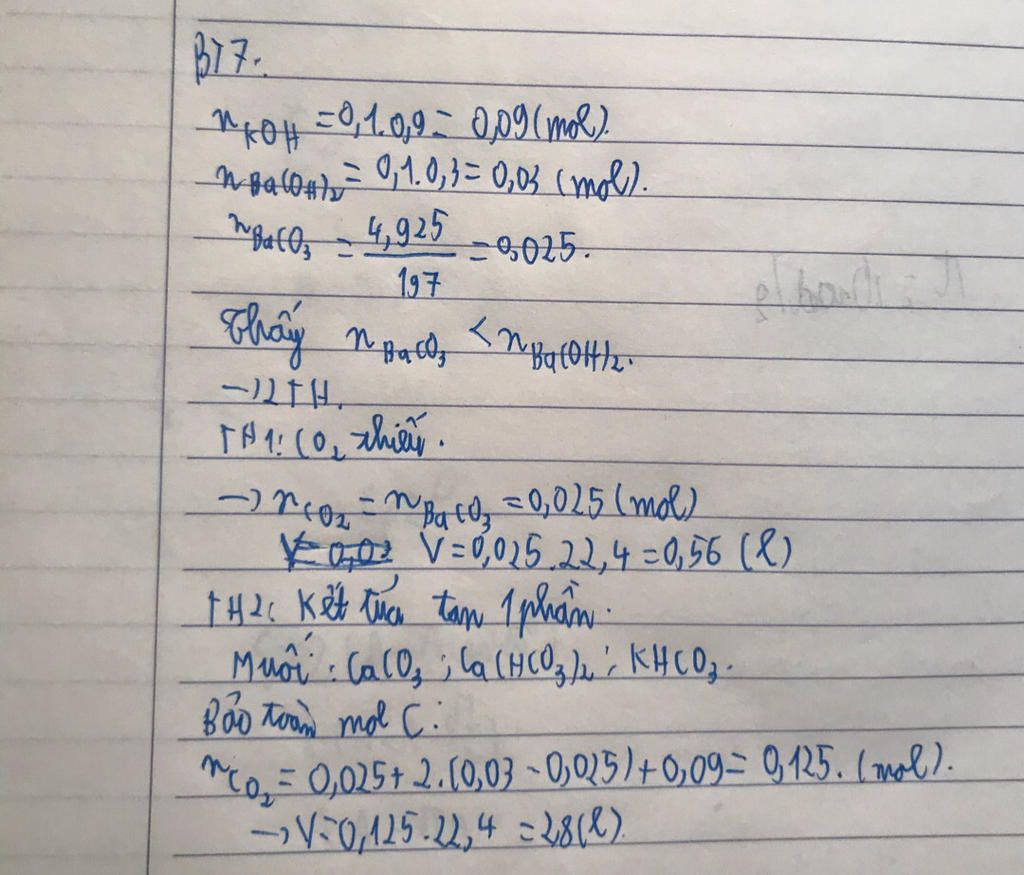 BT7.
n KOH = 0,1.0,9 = 0,09 (mol).
n Ba(OH)2 = 0,1.0,3 = 0,03 (mol).
n BaCO3 = 4,925 / 197 = 0,025.
Thấy n BaCO3 < n Ba(OH)2.
→ 2TH.
TH1: CO2 thiếu.
→ n CO2 = n BaCO3 = 0,025 (mol)
V = 0,025.22,4 = 0,56 (l)
TH2: Kết tủa tan 1 phần.
Muối: CaCO3; Ca(HCO3)2; KHCO3.
Bảo toàn mol C:
n CO2 = 0,025 + 2.(0,03 - 0,025) + 0,09 = 0,125. (mol).
→ V = 0,125.22,4 = 2,8 (l).